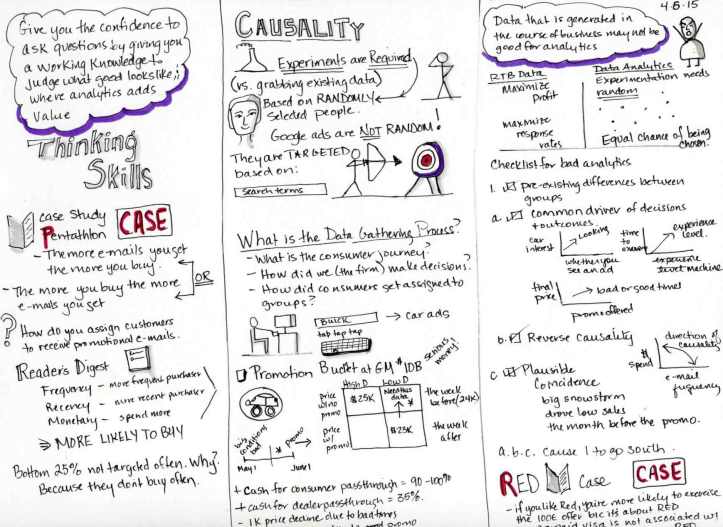 Give you the confidence to
ask questions by giving you
a working knowledge to
judge what good looks like,
where analytics adds
value
Thinking
Skills
case Study
Pentathlon
CASE
- The more e-mails you get
the more you buy.
- The more you buy the more
e-mails you get
OR
? How do you assign customers
to receive promotional e-mails.
Reader's Digest
Frequency - more frequent purchaser
Recency - more recent purchaser
Monetary - spend more
⇒ MORE LIKELY TO BUY
Bottom 25% not targeted often. Why?
Because they dont buy often.
CAUSALITY
Experiments are Required
(vs. grabbing existing data)
Based on RANDOMLY
selected people.
Google ads are NOT RANDOM!
They are TARGETED
based on:
search terms
What is the Data Gathering Process?
- What is the consumer journey?
- How did we (the firm) make decisions?
- How did consumers get assigned to
groups?
BUICK → car ads
tap tap tap
Promotion Bucket at GM $10B
serious money!
High D Low D
price w/no promo
$25K
Need this data
the week before (24K)
price w/ promo
$25K
the week after
buy conditions bad
promo
May 1 June 1
+ Cash for consumer passthrough = 90-100%
+ cash for dealer passthrough = 35%.
- 1K price decline due to bad times
4-8-15
Data that is generated in
the course of business may not be
good for analytics
RTB Data
Maximize
Profit
maximize
response
rates
Data Analytics
Experimentation needs
random
Equal chance of being
chosen.
Checklist for bad analytics
1. pre-existing differences between
groups
a. common driver of decisions
+ outcomes.
car interest
Looking
whether you see an ad
time to
experience level.
experience level machine
final price
bad or good times
promo offered
b. Reverse Causality
$ spend
direction of causality
e-mail frequency
c. Plausible
Coincidence
big snowstorm
drove low sales
the month before the promo.
a. b. c. cause 1 to go south.
RED Case CASE
- if you like Red, you're more likely to exercise
the 100€ offer b/c its about RED